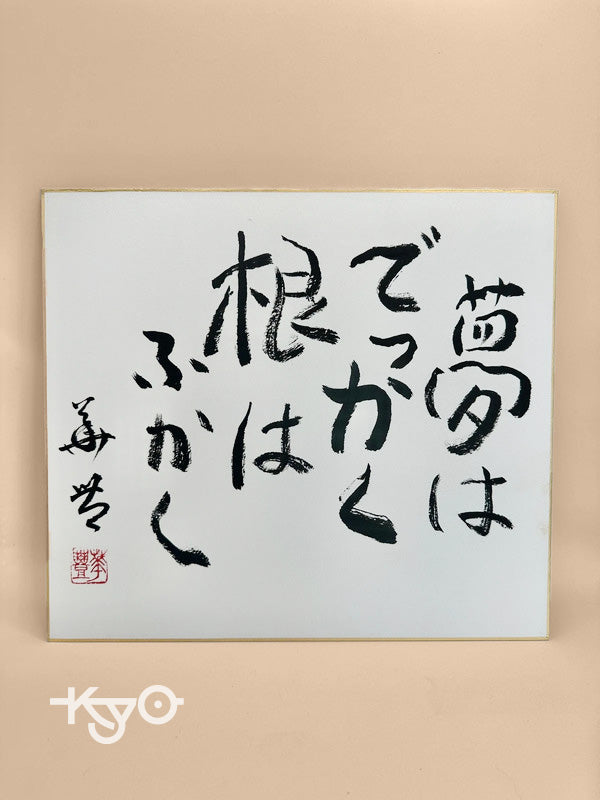 夢は
でっかく
根は
ふかく
華豊
KYO